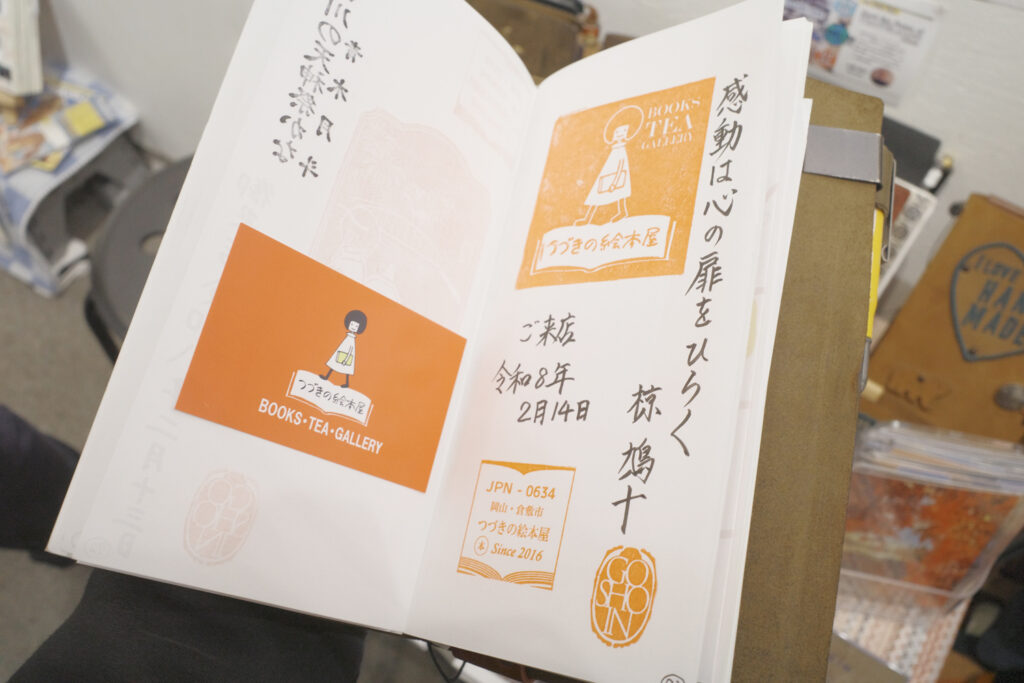 感動は心の扉をひらく
椋鳩十
BOOKS
TEA
GALLERY
つづきの絵本屋
ご来店
令和8年
2月14日
JPN - 0634
岡山・倉敷市
つづきの絵本屋
本 Since 2016
GO
SHO
IN
川の天神祭かな
青木月斗
つづきの絵本屋
BOOKS・TEA・GALLERY
I LOVE
HAND
MADE